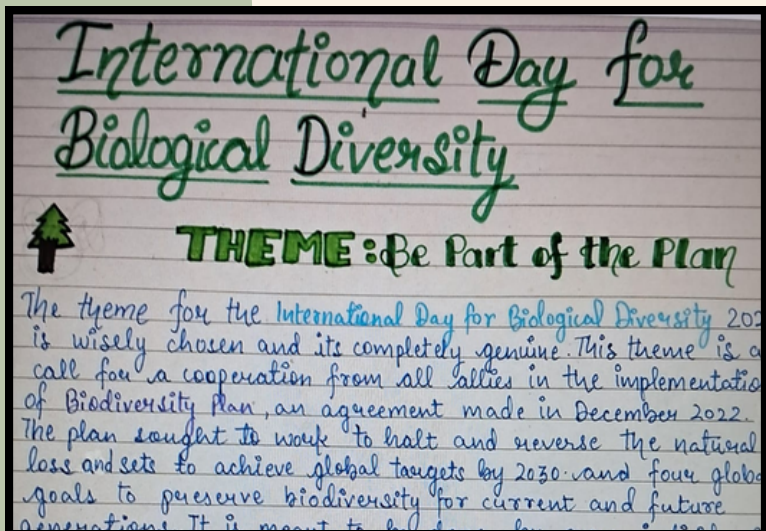 International Day for
Biological Diversity
THEME: Be Part of the Plan
The theme for the International Day for Biological Diversity 202
is wisely chosen and its completely genuine. This theme is a
call for a cooperation from all allies in the implementatio
of Biodiversity Plan, an agreement made in December 2022.
The plan sought to work to halt and reverse the natural
loss and sets to achieve global targets by 2030 and four globa
goals to preserve biodiversity for current and future
generations. It is meant to